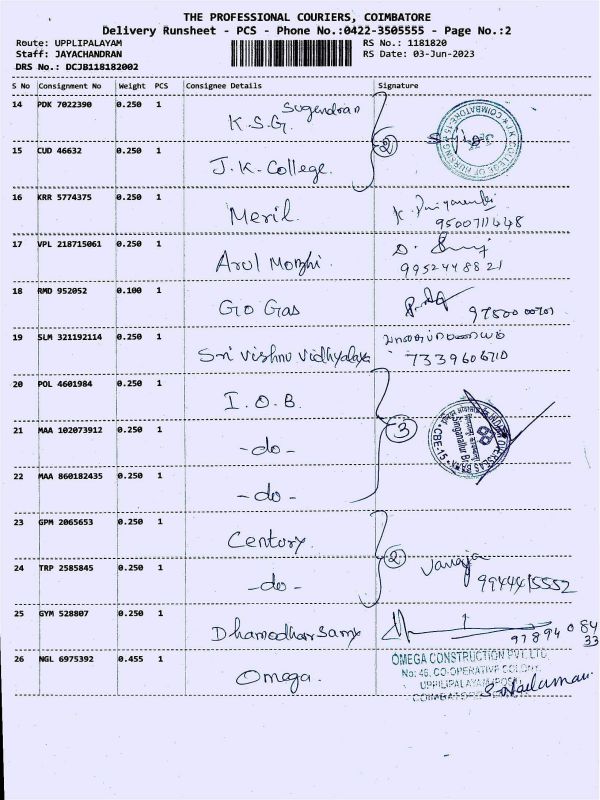 THE PROFESSIONAL COURIERS, COIMBATORE
Delivery Runsheet - PCS - Phone No.:0422-3505555 - Page No.:2
Route: UPPLIPALAYAM RS No.: 1181820
Staff: JAYACHANDRAN RS Date: 03-Jun-2023
DRS No.: DCJB118182002
S No Consignment No Weight PCS Consignee Details Signature
14 PDK 7022390 0.250 1 K.S.G. Sugendran
15 CUD 46632 0.250 1 J.K. College. 2
16 KRR 5774375 0.250 1 Meril. K.
9500711448
17 VPL 218715061 0.250 1 Arul Mozhi. D.
9952448821
18 RMD 952052 0.100 1 Go Gas
19 SLM 321192114 0.250 1 Sri Vishnu Vidhyalaya
7339606710
20 POL 4601984 0.250 1 I.O.B.
21 MAA 102073912 0.250 1 -do- 3
22 MAA 860182435 0.250 1 -do-
INDIAN OVERSEAS BANK
Singanallur Br.
CBE-15
23 GPM 2065653 0.250 1 Century.
24 TRP 2585845 0.250 1 -do- 2 Vanaja
9944415552
25 GYM 528807 0.250 1 Dhamodharsamy
97894 084
33
26 NGL 6975392 0.455 1 Omega.
OMEGA CONSTRUCTION PVT. LTD.
No: 46, CO-OPERATIVE COLONY,
UPPILIPALAYAM (POST)
COIMBATORE